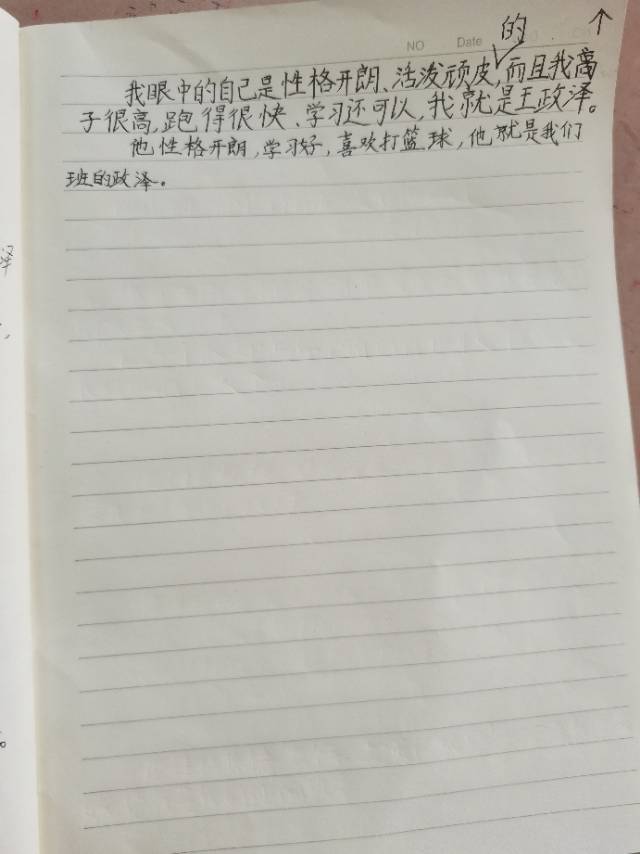 NO Date
我眼中的自己是性格开朗、活泼顽皮的,而且我高
子很高,跑得很快、学习还可以,我就是王政泽。
他性格开朗,学习好,喜欢打篮球,他就是我们
班的政泽。
泽